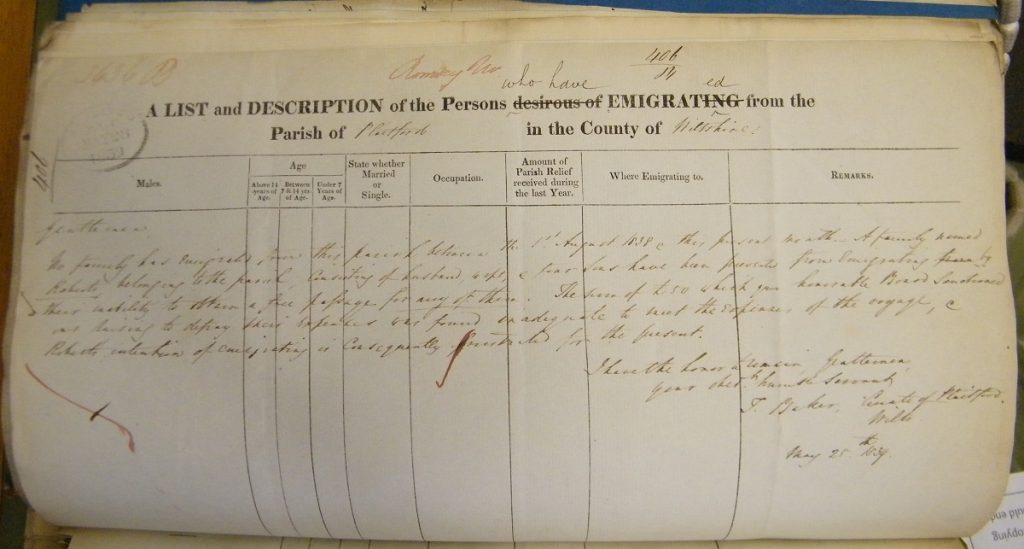 Romsey
406
14
who have
ed
A LIST and DESCRIPTION of the Persons desirous of EMIGRATING from the
Parish of Plaitford in the County of Wiltshire
406
Males.
Age
Above 14 years of Age.
Between 7 & 14 yrs. of Age.
Under 7 Years of Age.
State whether Married or Single.
Occupation.
Amount of Parish Relief received during the last Year.
Where Emigrating to.
REMARKS.
Gentlemen
No family has emigrated from this parish between the 1st August 1838 & this present month. A family named
Roberts belonging to the parish, consisting of husband, wife, & four sons have been prevented from emigrating by
their inability to obtain a free passage for any of them. The sum of £50 which your honorable Board sanctioned
our raising to defray their expenses was found inadequate to meet the expenses of the voyage, &
Roberts intention of emigrating is consequently frustrated for the present.
I have the honor to remain, Gentlemen,
your obedt. humble Servant
T. Baker, Curate of Plaitford.
Wilts
May 25th 1839.
opying
ould end